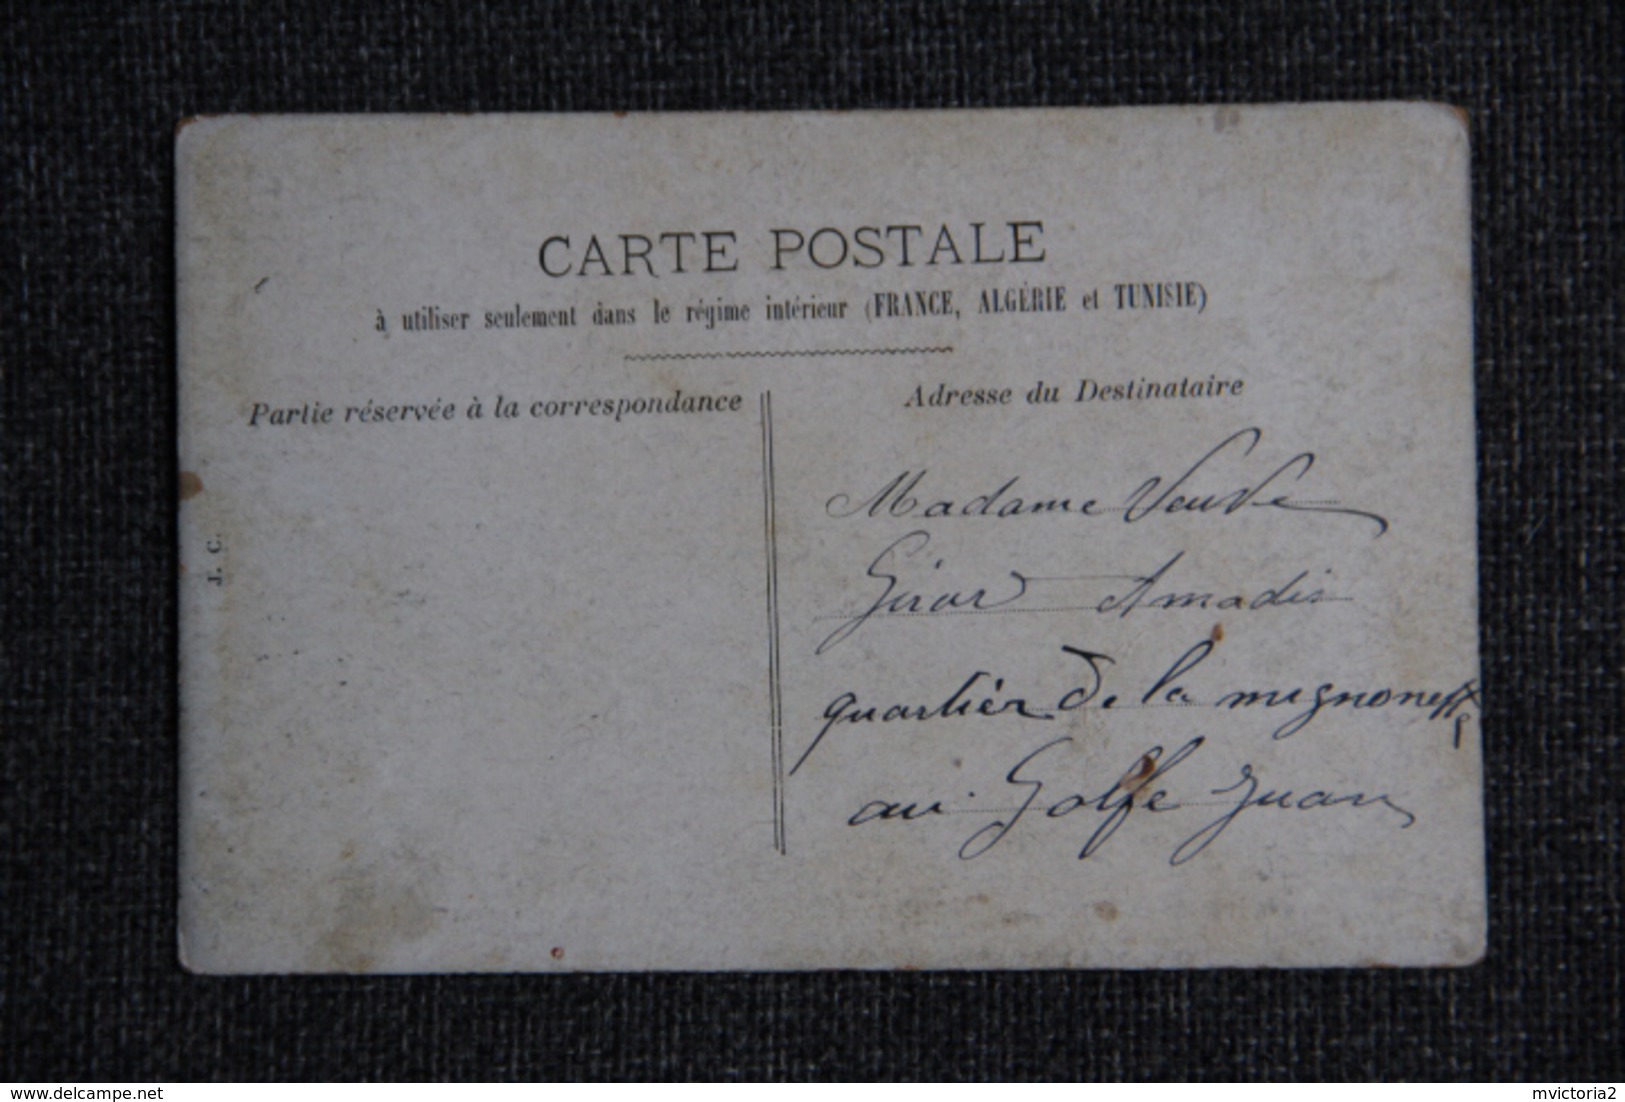 CARTE POSTALE
à utiliser seulement dans le régime intérieur (FRANCE, ALGÉRIE et TUNISIE)
Partie réservée à la correspondance
Adresse du Destinataire
J. C.
Madame Veuve
Girar Amadis
quartier de la mignonette
au Golfe Juan
www.delcampe.net
mvictoria2